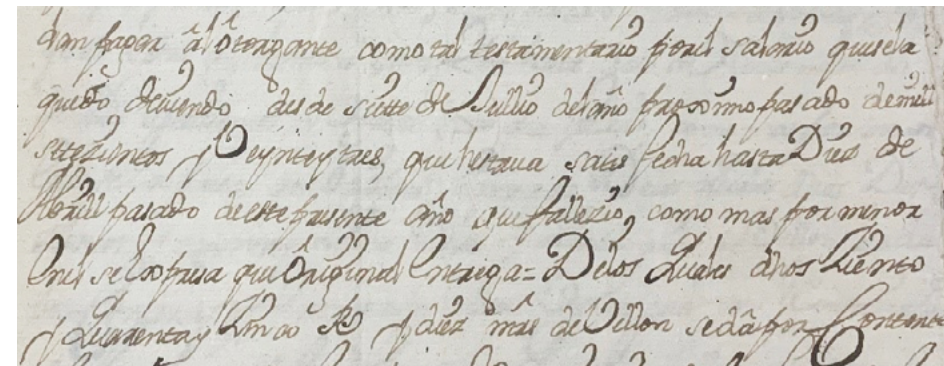 dan pagar âl otorgante como tal testamentario por el salario que se la
quedo deviendo desde siette de Jullio del año proximo pasado de mill
settezientos y Veynte y tres, que hestava satisfecha hasta Diez de
Abrill pasado de este presente año que fallezio, como mas por menor
en el se Expresa que Original Entrega = De los Quales dhos Ziento
y Quarenta y Zinco Rs y diez mrs de Vellon se dâ por Contento